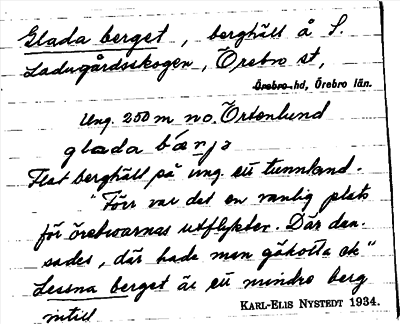 Glada berget, berghäll å S.
Ladugårdsskogen, Örebro st,
Örebro hd, Örebro län.
Ung. 250 m no. Örtenlund
glada bärja
Flat berghäll på ung. ett tunnland.
"Förr var det en vanlig plats
för örebroarnas utflykter. Där dan-
sades, där hade man gökotta ok"
Lessna berget är ett mindre berg
intill
KARL-ELIS NYSTEDT 1934.